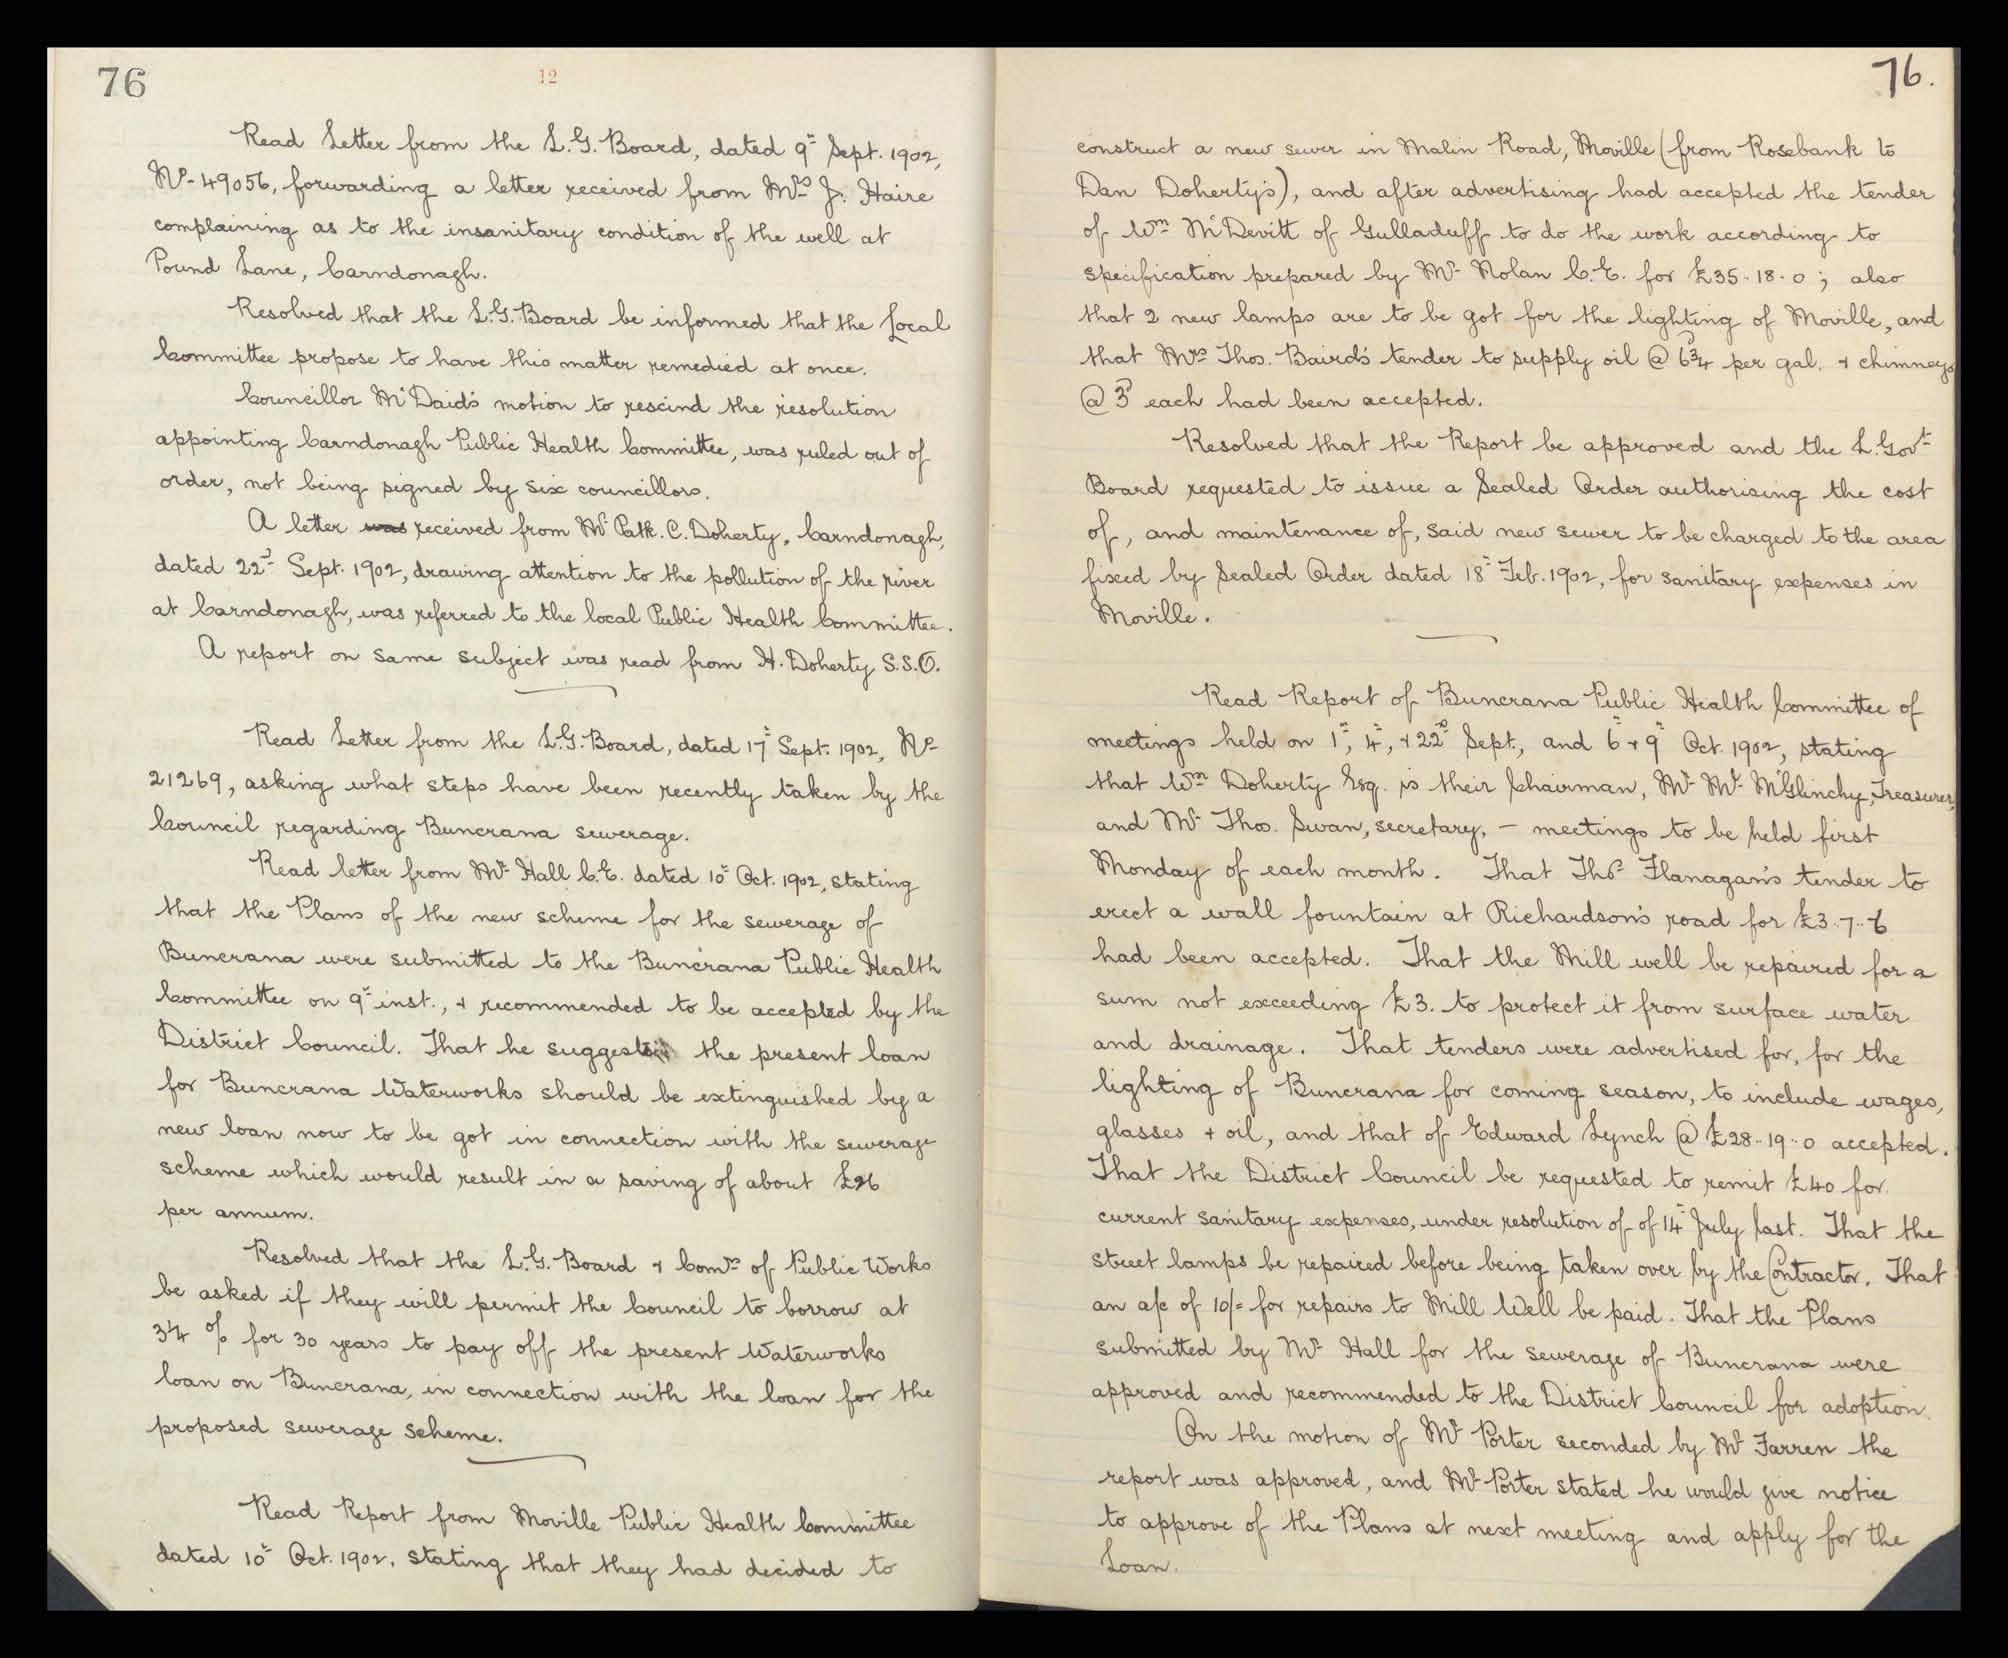 76
12
Read Letter from the L.G. Board, dated 9th Sept. 1902,
No. 49056, forwarding a letter received from Mrs J. Haire
complaining as to the insanitary condition of the well at
Pound Lane, Carndonagh.
Resolved that the L.G. Board be informed that the Local
Committee propose to have this matter remedied at once.
Councillor McDaid's motion to rescind the resolution
appointing Carndonagh Public Health Committee, was ruled out of
order, not being signed by six councillors.
A letter was received from Mr Patk. C. Doherty, Carndonagh,
dated 22nd Sept. 1902, drawing attention to the pollution of the river
at Carndonagh, was referred to the local Public Health Committee.
A report on same subject was read from H. Doherty S.S.O.
Read Letter from the L.G. Board, dated 17th Sept. 1902, No.
21269, asking what steps have been recently taken by the
Council regarding Buncrana sewerage.
Read letter from Mr Hall C.E. dated 10th Oct. 1902, stating
that the Plans of the new scheme for the sewerage of
Buncrana were submitted to the Buncrana Public Health
Committee on 9th inst., + recommended to be accepted by the
District Council. That he suggests the present loan
for Buncrana Waterworks should be extinguished by a
new loan now to be got in connection with the sewerage
scheme which would result in a saving of about £26
per annum.
Resolved that the L.G. Board + Comrs of Public Works
be asked if they will permit the Council to borrow at
3¼ % for 30 years to pay off the present Waterworks
loan on Buncrana, in connection with the loan for the
proposed sewerage scheme.
Read Report from Moville Public Health Committee
dated 10th Oct. 1902, stating that they had decided to
76.
construct a new sewer in Malin Road, Moville (from Rosebank to
Dan Doherty's), and after advertising had accepted the tender
of Wm McDevitt of Gulladuff to do the work according to
specification prepared by Mr Nolan C.E. for £35-18-0; also
that 2 new lamps are to be got for the lighting of Moville, and
that Mrs Thos. Baird's tender to supply oil @ 6¾d per gal. + chimneys
@ 3d each had been accepted.
Resolved that the Report be approved and the L. Govt
Board requested to issue a Sealed Order authorising the cost
of, and maintenance of, said new sewer to be charged to the area
fixed by Sealed Order dated 18th Feb. 1902, for sanitary expenses in
Moville.
Read Report of Buncrana Public Health Committee of
meetings held on 1st, 4th, + 22nd Sept., and 6th + 9th Oct. 1902, stating
that Wm Doherty Esq. is their Chairman, Mr Ml McGlinchy, Treasurer,
and Mr Thos. Swan, secretary, – meetings to be held first
Monday of each month. That Thos Flanagan's tender to
erect a wall fountain at Richardson's road for £3-7-6
had been accepted. That the Mill well be repaired for a
sum not exceeding £3. to protect it from surface water
and drainage. That tenders were advertised for, for the
lighting of Buncrana for coming season, to include wages,
glasses + oil, and that of Edward Lynch @ £28-19-0 accepted.
That the District Council be requested to remit £40 for
current sanitary expenses, under resolution of of 14th July last. That the
street lamps be repaired before being taken over by the Contractor. That
an a/c of 10/= for repairs to Mill Well be paid. That the Plans
submitted by Mr Hall for the sewerage of Buncrana were
approved and recommended to the District Council for adoption.
On the motion of Mr Porter seconded by Mr Farren the
report was approved, and Mr Porter stated he would give notice
to approve of the Plans at next meeting and apply for the
Loan.